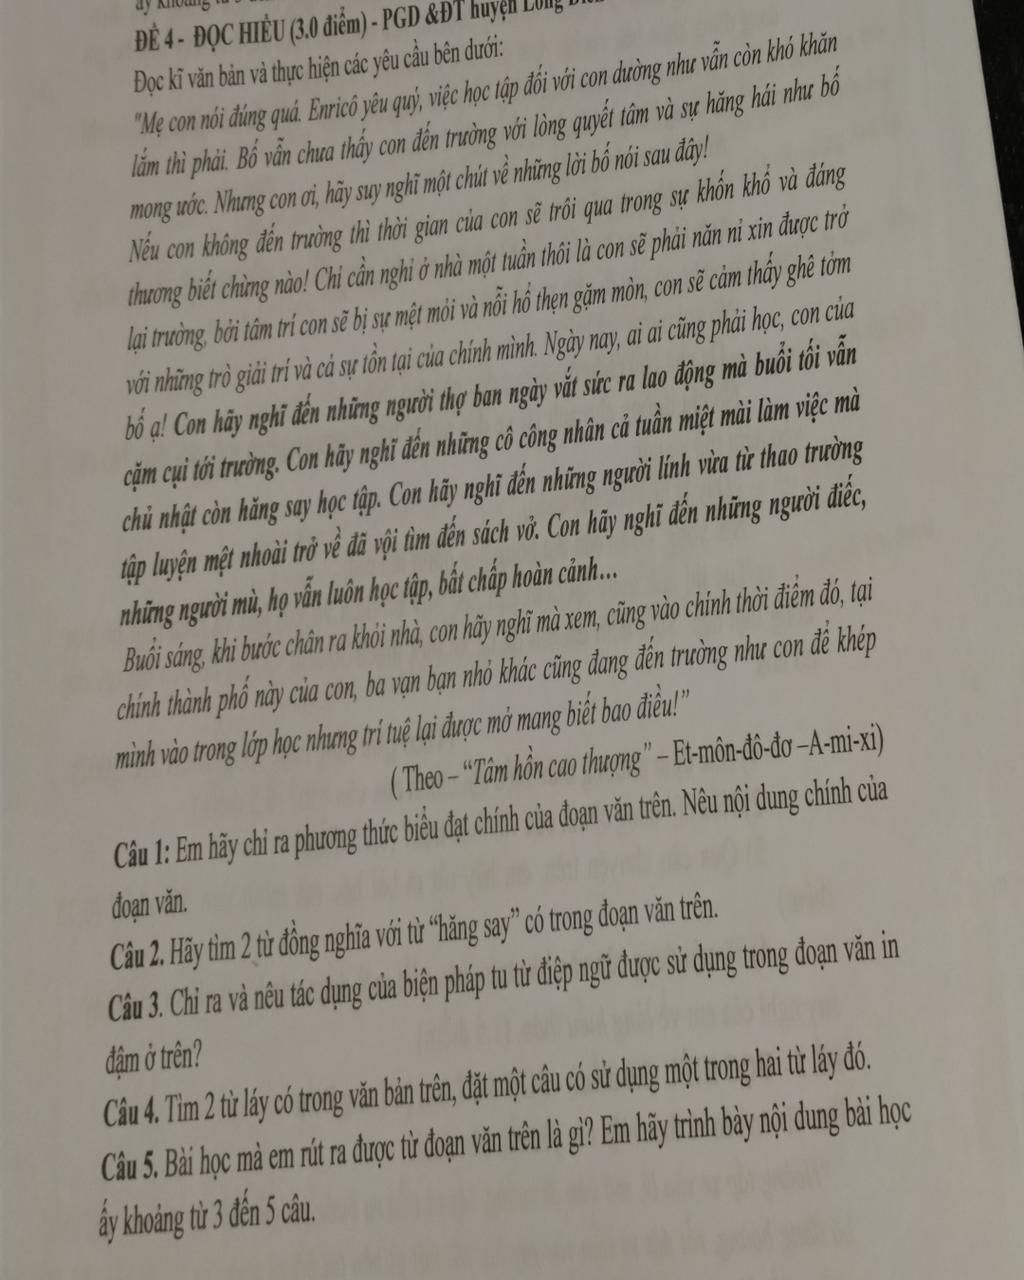 ĐỀ 4 - ĐỌC HIỂU (3.0 điểm) - PGD &ĐT huyện Long
Đọc kĩ văn bản và thực hiện các yêu cầu bên dưới:
"Mẹ con nói đúng quá. Enricô yêu quý, việc học tập đối với con dường như vẫn còn khó khăn
lắm thì phải. Bố vẫn chưa thấy con đến trường với lòng quyết tâm và sự hăng hái như bố
mong ước. Nhưng con ơi, hãy suy nghĩ một chút về những lời bố nói sau đây!
Nếu con không đến trường thì thời gian của con sẽ trôi qua trong sự khốn khổ và đáng
thương biết chừng nào! Chỉ cần nghỉ ở nhà một tuần thôi là con sẽ phải năn nỉ xin được trở
lại trường, bởi tâm trí con sẽ bị sự mệt mỏi và nỗi hổ thẹn gặm mòn, con sẽ cảm thấy ghê tởm
với những trò giải trí và cả sự tồn tại của chính mình. Ngày nay, ai ai cũng phải học, con của
bố ạ! Con hãy nghĩ đến những người thợ ban ngày vắt sức ra lao động mà buổi tối vẫn
cặm cụi tới trường. Con hãy nghĩ đến những cô công nhân cả tuần miệt mài làm việc mà
chủ nhật còn hăng say học tập. Con hãy nghĩ đến những người lính vừa từ thao trường
tập luyện mệt nhoài trở về đã vội tìm đến sách vở. Con hãy nghĩ đến những người điếc,
những người mù, họ vẫn luôn học tập, bất chấp hoàn cảnh...
Buổi sáng, khi bước chân ra khỏi nhà, con hãy nghĩ mà xem, cũng vào chính thời điểm đó, tại
chính thành phố này của con, ba vạn bạn nhỏ khác cũng đang đến trường như con để khép
mình vào trong lớp học nhưng trí tuệ lại được mở mang biết bao điều!"
( Theo – "Tâm hồn cao thượng" – Et-môn-đô-đơ –A-mi-xi)
Câu 1: Em hãy chỉ ra phương thức biểu đạt chính của đoạn văn trên. Nêu nội dung chính của
đoạn văn.
Câu 2. Hãy tìm 2 từ đồng nghĩa với từ "hăng say" có trong đoạn văn trên.
Câu 3. Chỉ ra và nêu tác dụng của biện pháp tu từ điệp ngữ được sử dụng trong đoạn văn in
đậm ở trên?
Câu 4. Tìm 2 từ láy có trong văn bản trên, đặt một câu có sử dụng một trong hai từ láy đó.
Câu 5. Bài học mà em rút ra được từ đoạn văn trên là gì? Em hãy trình bày nội dung bài học
ấy khoảng từ 3 đến 5 câu.